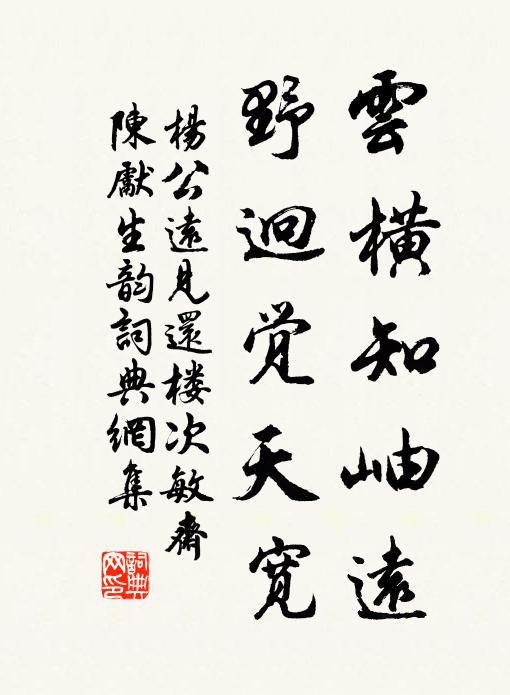 雲橫知岫遠
野迥覺天寬
楊公遠見還樓次敏齋
陳獻生韵詞典網集
詞典網印